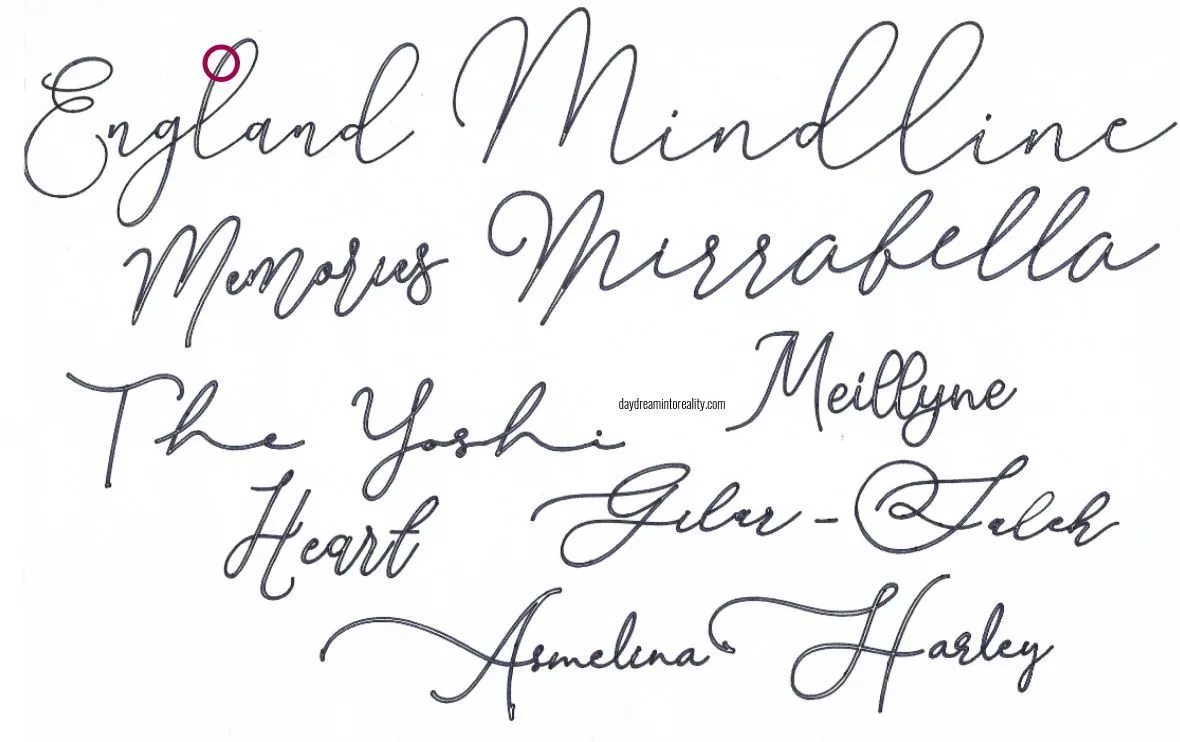 England Mindline
Memories Mirrabella
Meillyne
The Yoshi
daydreamintoreality.com
Heart Gilar - Saleh
Asmelina Harley